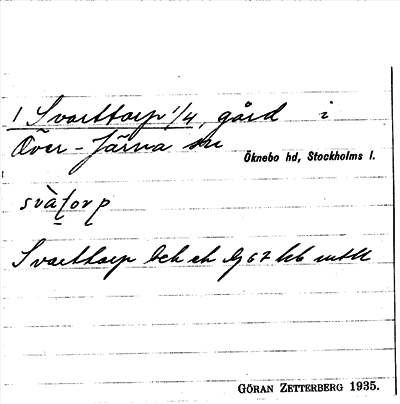 1 Svarttorp 1/4, gård i
Över-Järva sn
Öknebo hd, Stockholms l.
svàtorp
Svarttorp
GÖRAN ZETTERBERG 1935.